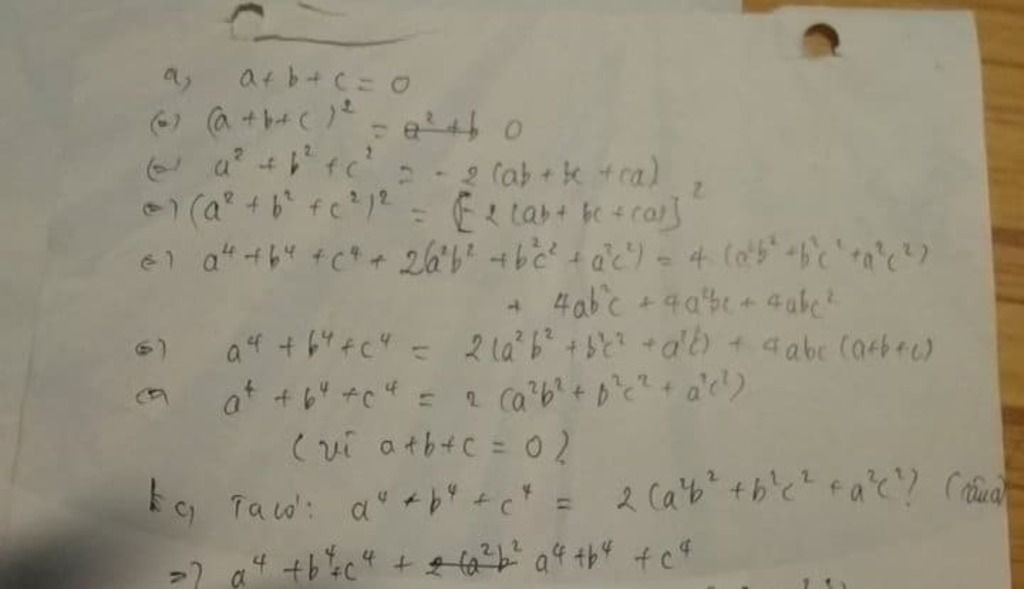 a, a+b+c = 0
(=) (a+b+c)² = a²+b 0
(=) a² + b² + c² = - 2 (ab + bc + ca)
(=) (a² + b² + c²)² = [-2 (ab + bc + ca)]²
(=) a⁴ + b⁴ + c⁴ + 2(a²b² + b²c² + a²c²) = 4 (a²b² + b²c² + a²c²)
+ 4ab²c + 4a²bc + 4abc²
(=) a⁴ + b⁴ + c⁴ = 2(a²b² + b²c² + a²c²) + 4abc (a+b+c)
(=) a⁴ + b⁴ + c⁴ = 2 (a²b² + b²c² + a²c²)
(vì a+b+c = 0)
c, Ta có: a⁴ + b⁴ + c⁴ = 2 (a²b² + b²c² + a²c²) (câu a)
=> a⁴ + b⁴ + c⁴ + 2(a²b² a⁴ + b⁴ + c⁴